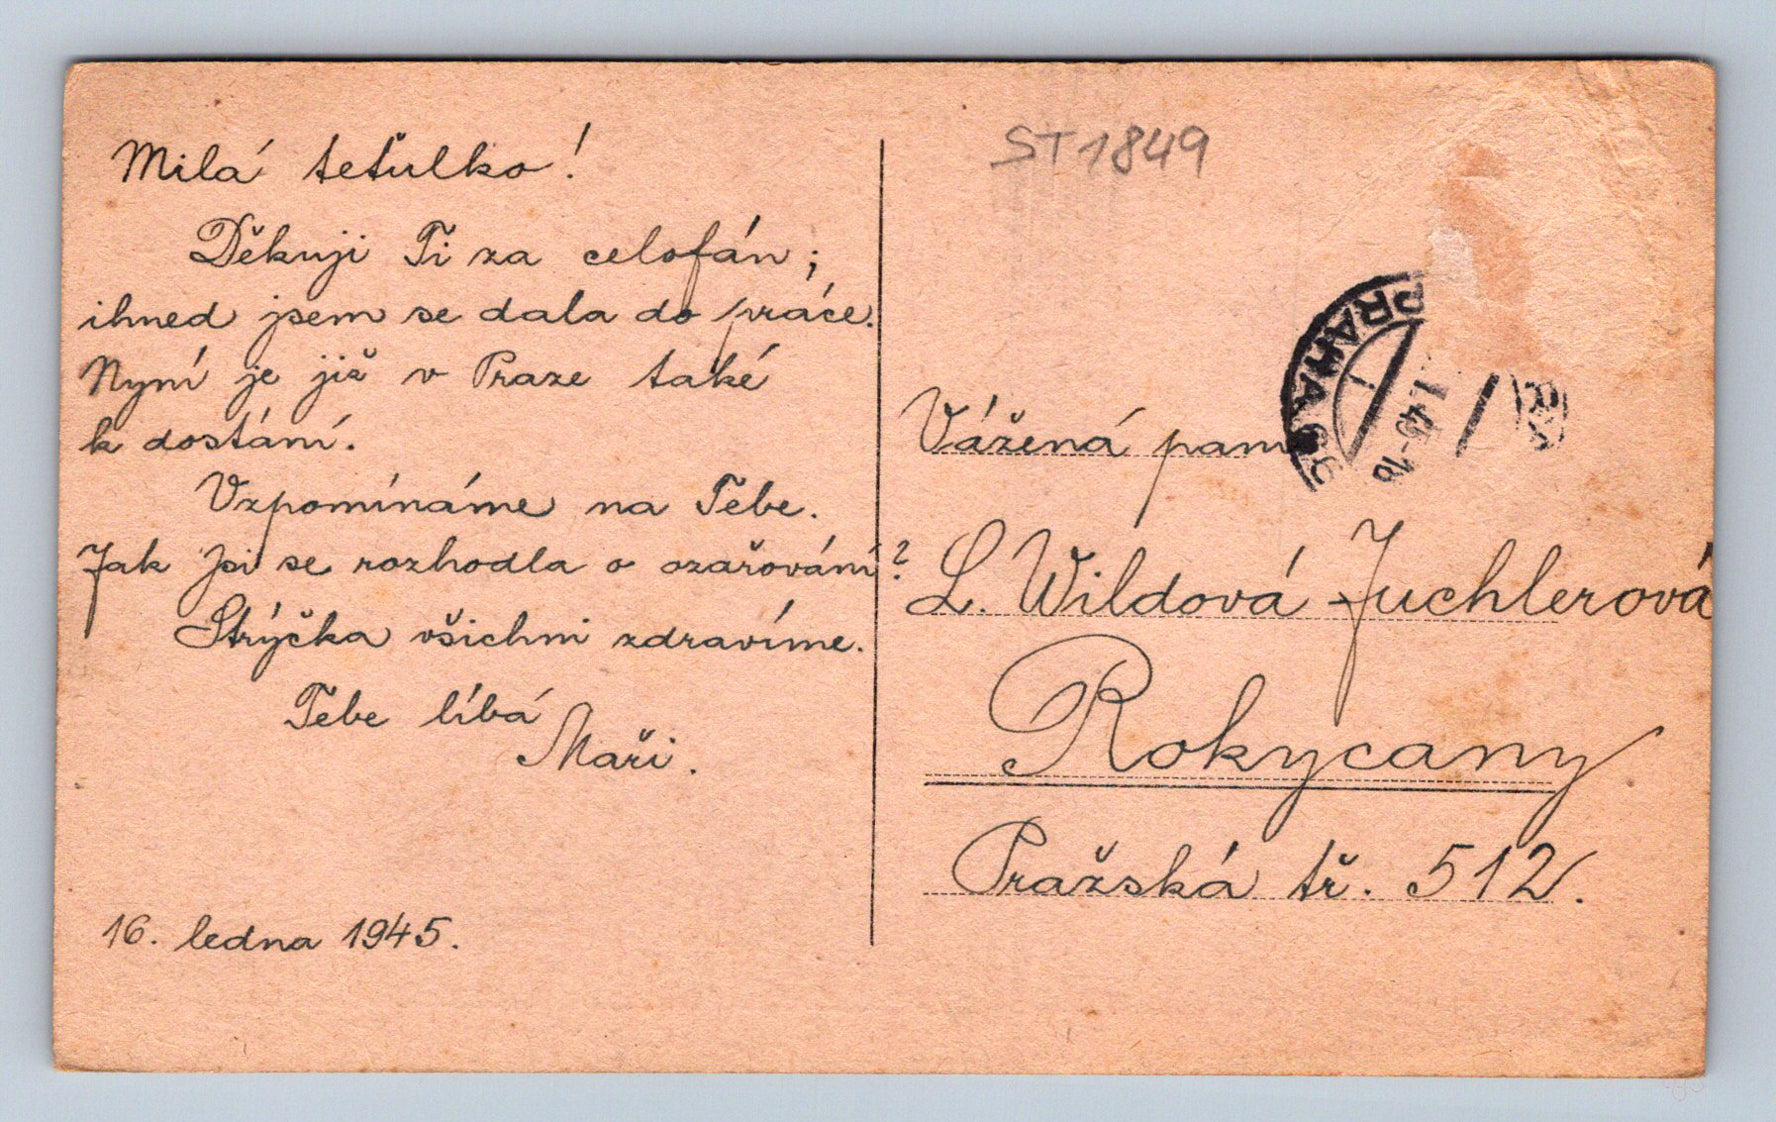 Milá teťulko!
Děkuji Ti za celofán;
ihned jsem se dala do práce.
Nyní je již v Praze také
k dostání.
Vzpomínáme na Tebe.
Jak jsi se rozhodla o ozařování?
Strýčka všichni zdravíme.
Tebe líbá
Maři.
16. ledna 1945.
ST1849
PRAHA
Vážená paní
L. Wildová-Juchlerová
Rokycany
Pražská tř. 512.